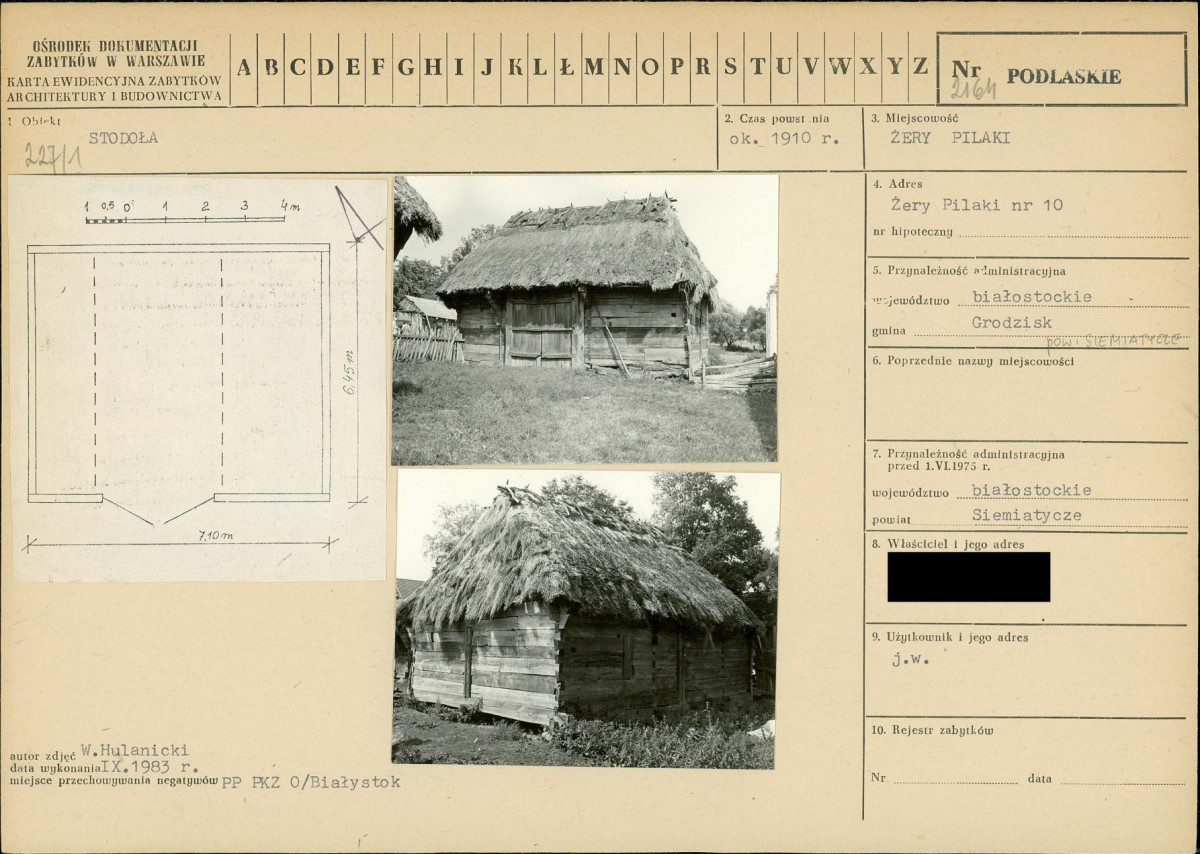 OŚRODEK DOKUMENTACJI
ZABYTKÓW W WARSZAWIE
KARTA EWIDENCYJNA ZABYTKÓW
ARCHITEKTURY I BUDOWNICTWA
A B C D E F G H I J K L Ł M N O P R S T U V W X Y Z
Nr 2164 PODLASKIE
1 Obiekt
STODOŁA
227/1
2. Czas powstania
ok. 1910 r.
3. Miejscowość
ŻERY PILAKI
1 0,5 0 1 2 3 4m
6,45m
7,10m
4. Adres
Żery Pilaki nr 10
nr hipoteczny
5. Przynależność administracyjna
województwo białostockie
gmina Grodzisk
pow. SIEMIATYCZE
6. Poprzednie nazwy miejscowości
7. Przynależność administracyjna
przed 1.VI.1975 r.
województwo białostockie
powiat Siemiatycze
8. Właściciel i jego adres
9. Użytkownik i jego adres
j.w.
10. Rejestr zabytków
Nr data
autor zdjęć W.Hulanicki
data wykonania IX.1983 r.
miejsce przechowywania negatywów PP PKZ O/Białystok